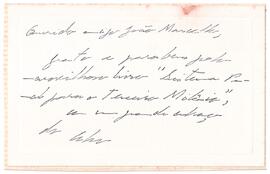 Querido amigo João Marcello,
grato e parabéns pelo
maravilhoso livro "Sistema Pe-
nal para o Terceiro Milênio",
com um grande abraço
do